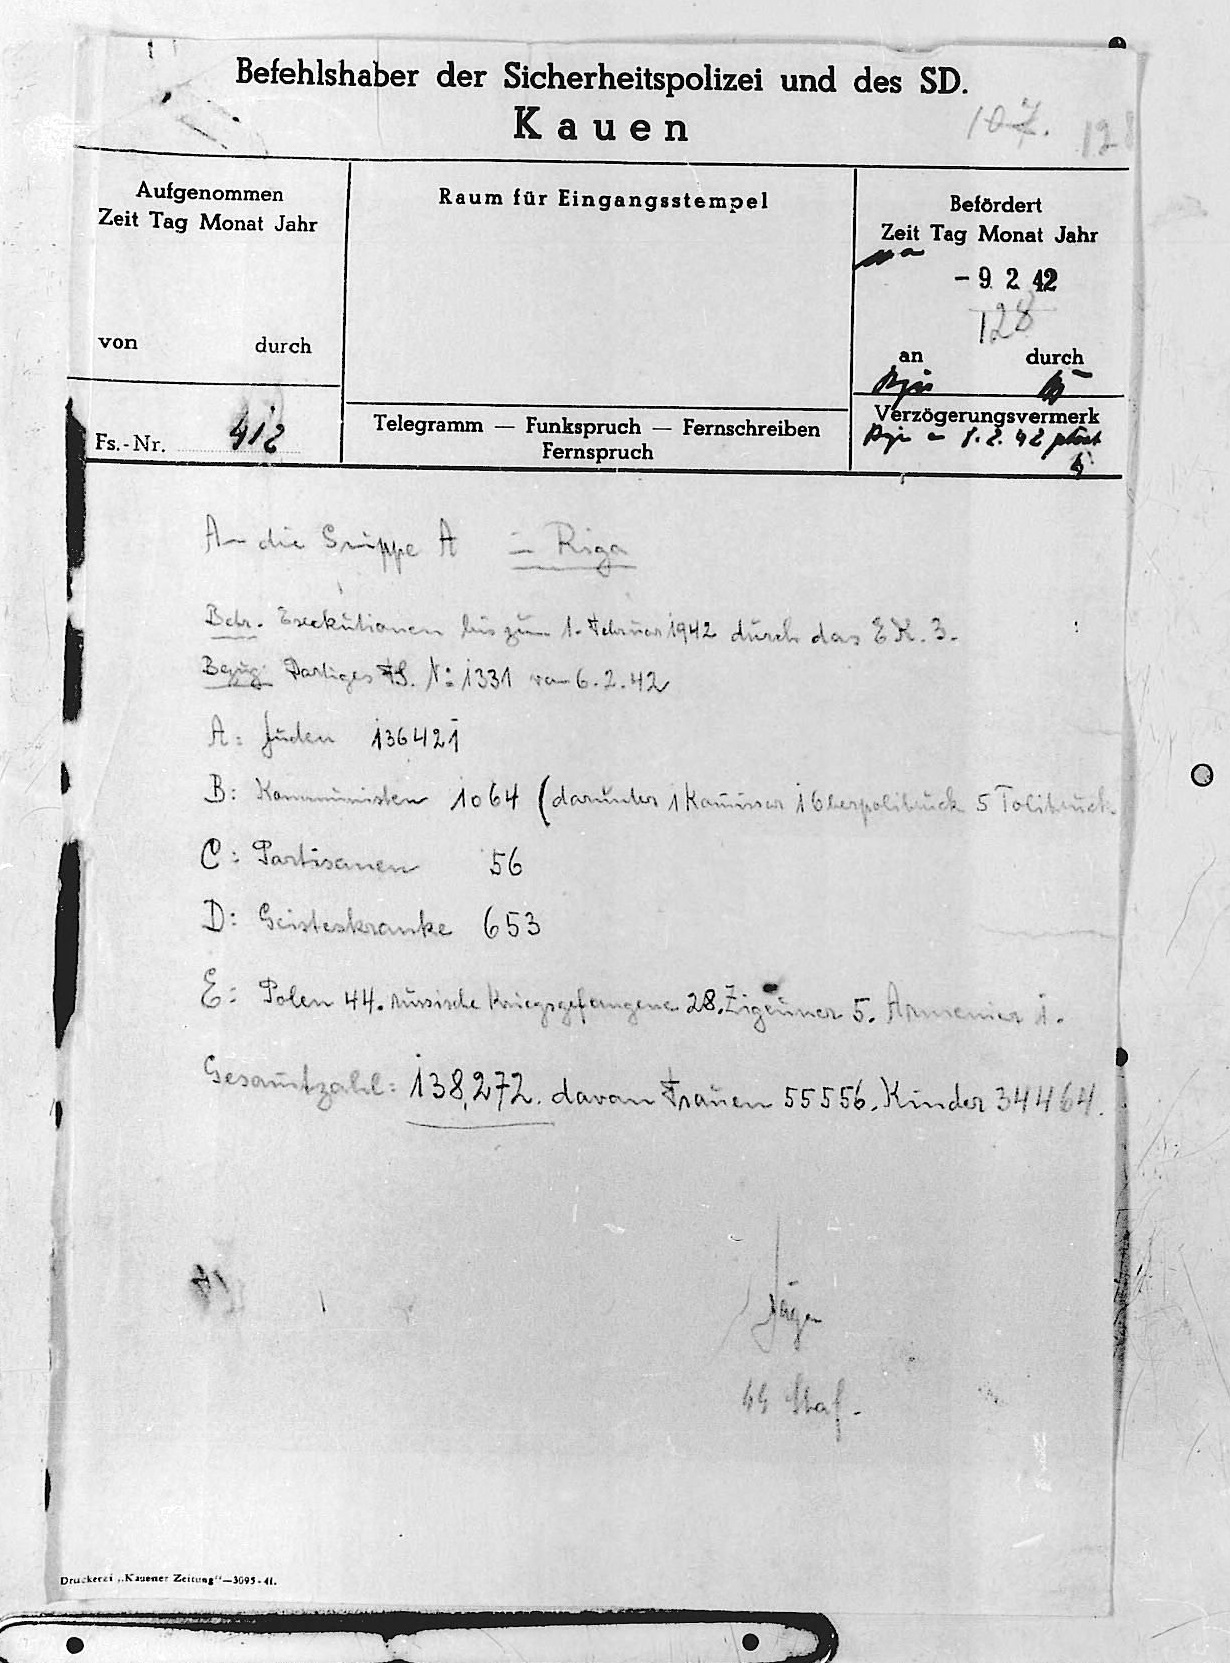 Befehlshaber der Sicherheitspolizei und des SD.
Kauen
107. 128
Aufgenommen
Zeit Tag Monat Jahr
von durch
Fs.-Nr. 412
Raum für Eingangsstempel
Telegramm — Funkspruch — Fernschreiben
Fernspruch
Befördert
Zeit Tag Monat Jahr
- 9. 2. 42
128
an durch
Verzögerungsvermerk
An die Gruppe A in Riga
Betr. Exekutionen bis zum 1. Februar 1942 durch das EK. 3.
Bezug: Dortiges FS. Nr 1331 vom 6.2.42
A: Juden 136421
B: Kommunisten 1064 (darunter 1 Kommissar 1 Oberpolitruck 5 Politruck
C: Partisanen 56
D: Geisteskranke 653
E: Polen 44. russische Kriegsgefangene 28. Zigeuner 5. Armenier 1.
Gesamtzahl: 138,272. davon Frauen 55556. Kinder 34464.
Jäger
SS Staf.
Druckerei „Kauener Zeitung"—3095-41.